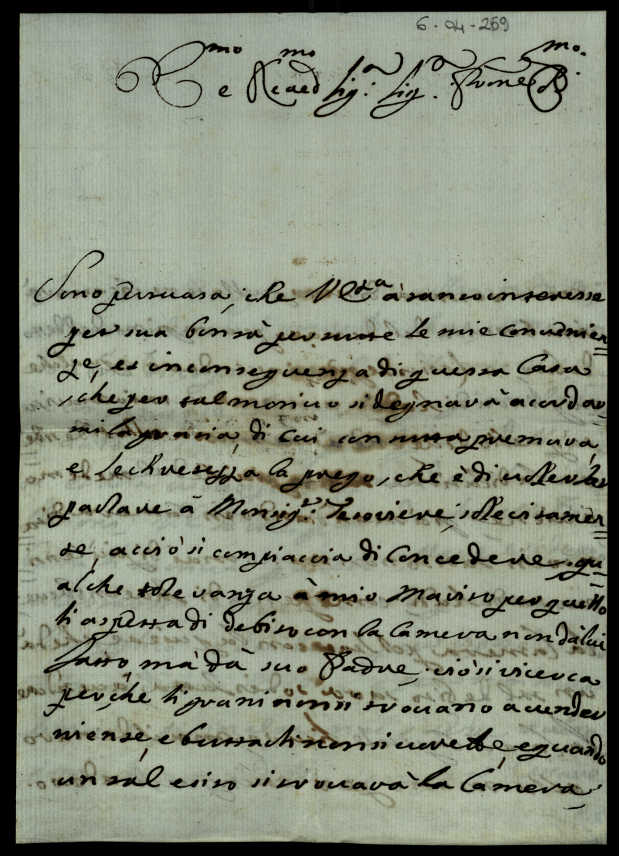 6-04-259
R.mo e Sig.r Sig.r Prone
Sono persuasa, che V Ecc.a à tanto interesse
per sua bontà per tutte le mie convenien=
ze, et in conseguenza di questa Casa
, che per tal motivo si degnarà acordar
mi la grazia, di cui con tutta premura,
e la prego, che è di voler
parlare à Monsig.r Tesoriere, sollecitamen=
te, acciò si compiaccia di concedere qu
alche tolevanza à mio Marito per quello
li aspetta di debito con la Camera non dà lui
fatto, mà dà suo Padre, ciò si ricerca
perche li grani non si trovano a vender
niente, e buttarli non si vorebbe, e quando
un tal esito si trovarà la Camera,